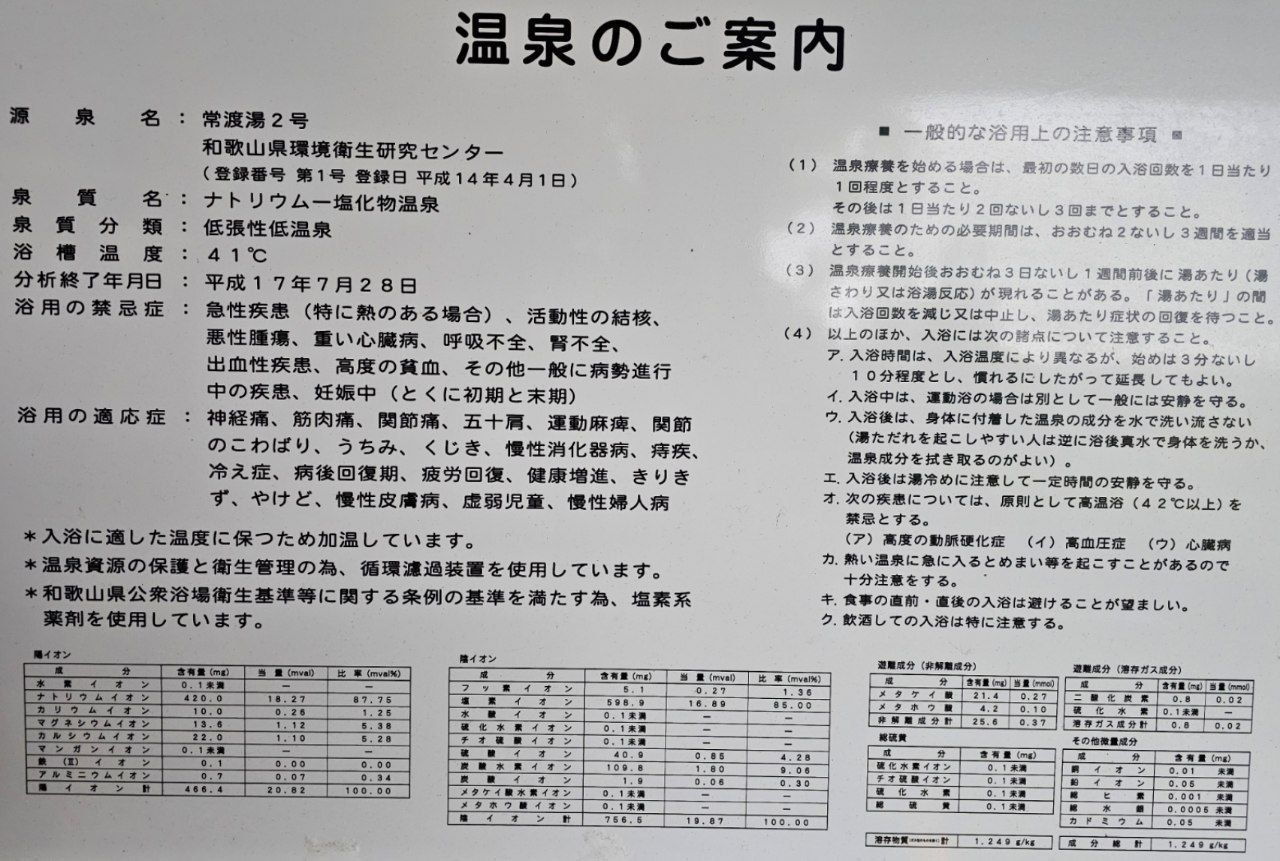 温泉のご案内
源泉名：常渡湯２号
和歌山県環境衛生研究センター
（登録番号 第１号 登録日 平成１４年４月１日）
泉質名：ナトリウムー塩化物温泉
泉質分類：低張性低温泉
浴槽温度：４１℃
分析終了年月日：平成１７年７月２８日
浴用の禁忌症：急性疾患（特に熱のある場合）、活動性の結核、
悪性腫瘍、重い心臓病、呼吸不全、腎不全、
出血性疾患、高度の貧血、その他一般に病勢進行
中の疾患、妊娠中（とくに初期と末期）
浴用の適応症：神経痛、筋肉痛、関節痛、五十肩、運動麻痺、関節
のこわばり、うちみ、くじき、慢性消化器病、痔疾、
冷え症、病後回復期、疲労回復、健康増進、きりき
ず、やけど、慢性皮膚病、虚弱児童、慢性婦人病
＊入浴に適した温度に保つため加温しています。
＊温泉資源の保護と衛生管理の為、循環濾過装置を使用しています。
＊和歌山県公衆浴場衛生基準等に関する条例の基準を満たす為、塩素系
薬剤を使用しています。
■ 一般的な浴用上の注意事項 ■
（１） 温泉療養を始める場合は、最初の数日の入浴回数を１日当たり
１回程度とすること。
その後は１日当たり２回ないし３回までとすること。
（２） 温泉療養のための必要期間は、おおむね２ないし３週間を適当
とすること。
（３） 温泉療養開始後おおむね３日ないし１週間前後に湯あたり（湯
さわり又は浴湯反応）が現れることがある。「湯あたり」の間
は入浴回数を減じ又は中止し、湯あたり症状の回復を待つこと。
（４） 以上のほか、入浴には次の諸点について注意すること。
ア．入浴時間は、入浴温度により異なるが、始めは３分ないし
１０分程度とし、慣れるにしたがって延長してもよい。
イ．入浴中は、運動浴の場合は別として一般には安静を守る。
ウ．入浴後は、身体に付着した温泉の成分を水で洗い流さない
（湯ただれを起こしやすい人は逆に浴後真水で身体を洗うか、
温泉成分を拭き取るのがよい）。
エ．入浴後は湯冷めに注意して一定時間の安静を守る。
オ．次の疾患については、原則として高温浴（４２℃以上）を
禁忌とする。
（ア）高度の動脈硬化症 （イ）高血圧症 （ウ）心臓病
カ．熱い温泉に急に入るとめまい等を起こすことがあるので
十分注意をする。
キ．食事の直前・直後の入浴は避けることが望ましい。
ク．飲酒しての入浴は特に注意する。
陽イオン
成分 含有量(mg) 当量(mval) 比率(mval%)
水素イオン 0.1未満 － －
ナトリウムイオン 420.0 18.27 87.75
カリウムイオン 10.0 0.26 1.25
マグネシウムイオン 13.6 1.12 5.38
カルシウムイオン 22.0 1.10 5.28
マンガンイオン 0.1未満 － －
鉄（Ⅱ）イオン 0.1 0.00 0.00
アルミニウムイオン 0.7 0.07 0.34
陽イオン計 466.4 20.82 100.00
陰イオン
成分 含有量(mg) 当量(mval) 比率(mval%)
フッ素イオン 5.1 0.27 1.36
塩素イオン 598.9 16.89 85.00
水酸イオン 0.1未満 － －
硫化水素イオン 0.1未満 － －
チオ硫酸イオン 0.1未満 － －
硫酸イオン 40.9 0.85 4.28
炭酸水素イオン 109.8 1.80 9.06
炭酸イオン 1.9 0.06 0.30
メタケイ酸水素イオン 0.1未満 － －
メタホウ酸イオン 0.1未満 － －
陰イオン計 756.5 19.87 100.00
遊離成分（非解離成分）
成分 含有量(mg) 当量(mmol)
メタケイ酸 21.4 0.27
メタホウ酸 4.2 0.10
非解離成分計 25.6 0.37
遊離成分（溶存ガス成分）
成分 含有量(mg) 当量(mmol)
二酸化炭素 0.8 0.02
硫化水素 0.1未満 －
溶存ガス成分計 0.8 0.02
総硫黄
成分 含有量(mg)
硫化水素イオン 0.1未満
チオ硫酸イオン 0.1未満
硫化水素 0.1未満
総硫黄 0.1未満
その他微量成分
成分 含有量(mg)
銅イオン 0.01 未満
鉛イオン 0.05 未満
総ヒ素 0.001 未満
総水銀 0.0005 未満
カドミウム 0.05 未満
溶存物質 計 1.249 g/kg
成分総計 1.249 g/kg